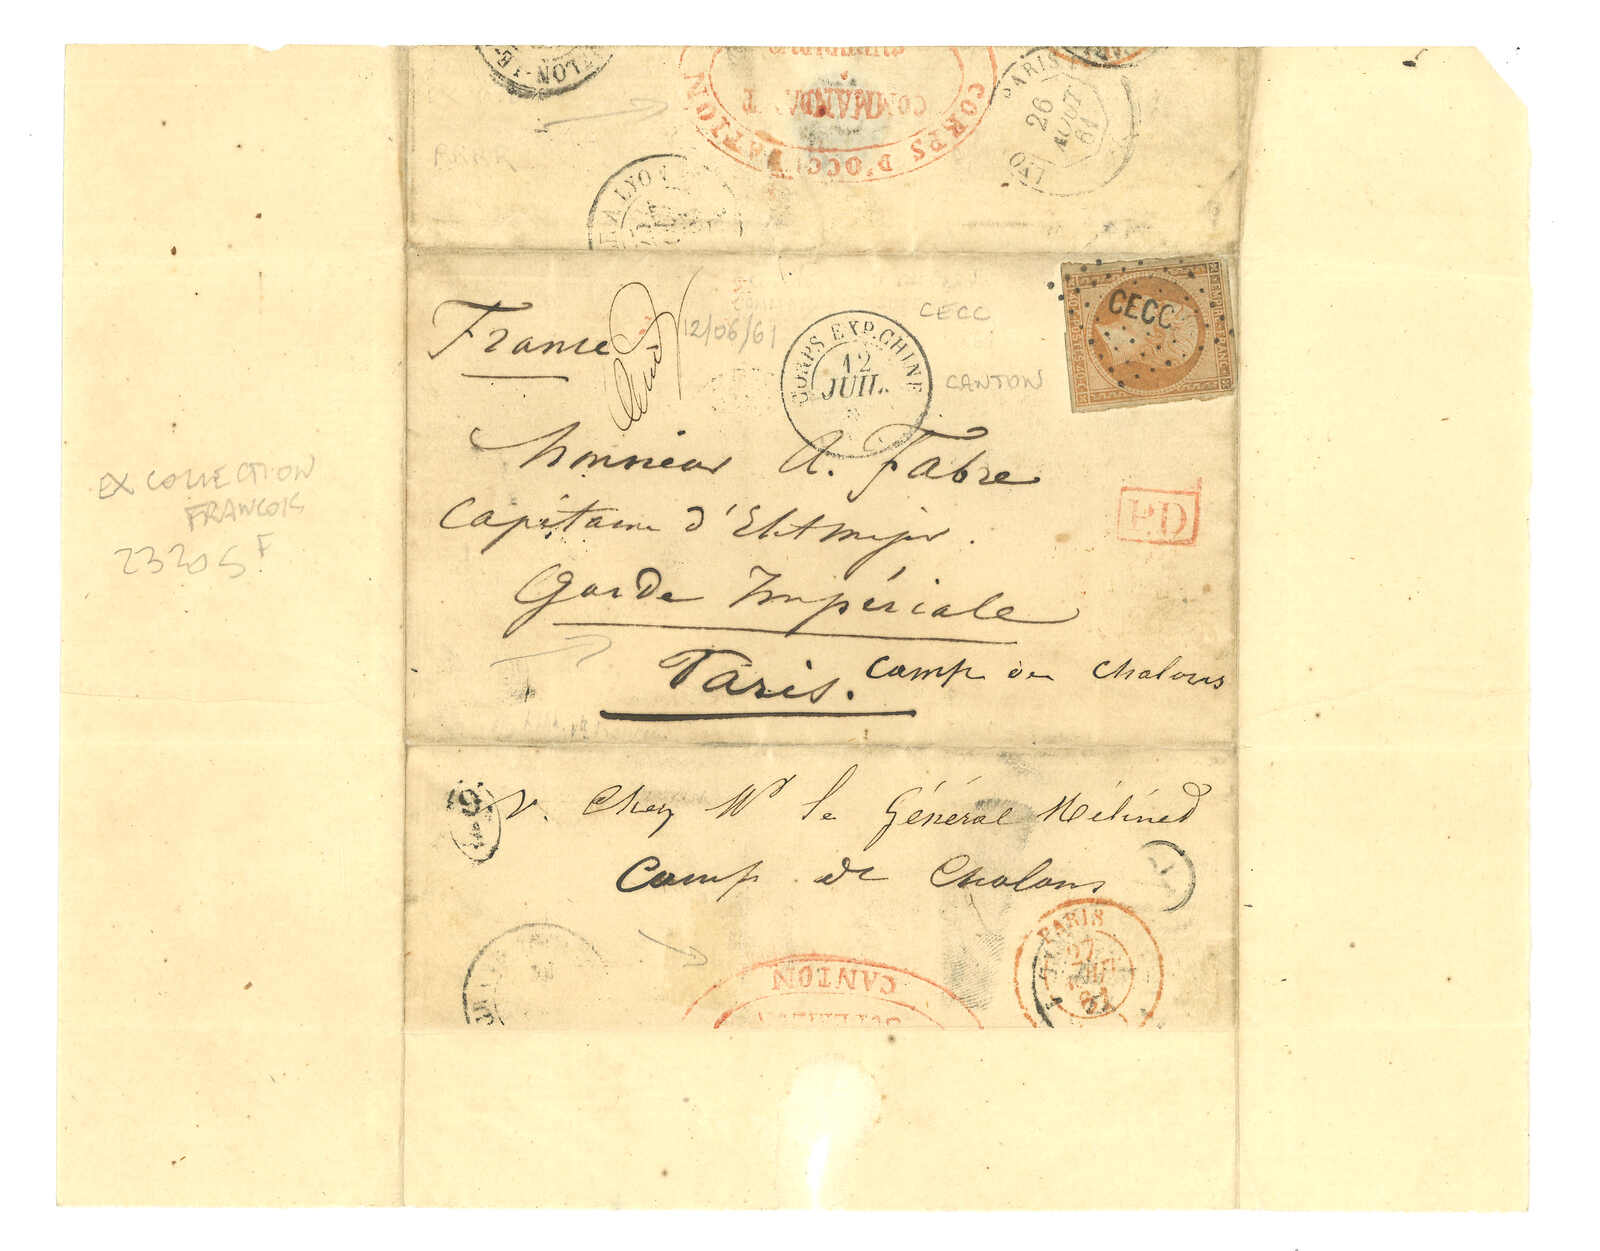 CORPS D'OCC ATION
COMMANDA T
PARIS
26
AOUT
61
LYO
A LYO
RRRR
France
12/06/61
CORPS EXP. CHINE
12
JUIL.
CECC
CANTON
CECC
Monsieur A. Fabre
Capitaine d'Etat major.
P.D
Garde Impériale
Paris. Camp de Chalons
EX COLLECTION
FRANCOIS
23205 F
Chez Mr le Général Mélined
Camp de Chalons
CANTON
PARIS
27